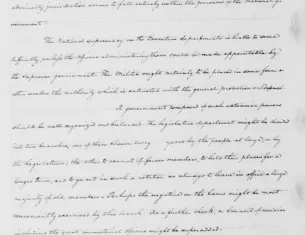 admiralty jurisdiction seems to fall entirely within the purview of the national Gov-
ernment.
The National supremacy in the Executive departments is liable to some
difficulty, unless the officers administering them could be made appointable by
the supreme Government. The Militia ought entirely to be placed in some form or
other under the authority which is entrusted with the general protection and defence.
A Government composed of such extensive powers
should be well organized and balanced. The legislative department might be divided
into two branches, one of them chosen every years by the people at large, or by
the Legislatures; the other to consist of fewer members, to hold their places for a
longer term, and to go out in such a rotation as always to leave in office a large
majority of old members. Perhaps the negative on the laws might be most
conveniently exercised by this branch. As a further check, a Council of revision
including the great ministerial officers might be superadded.